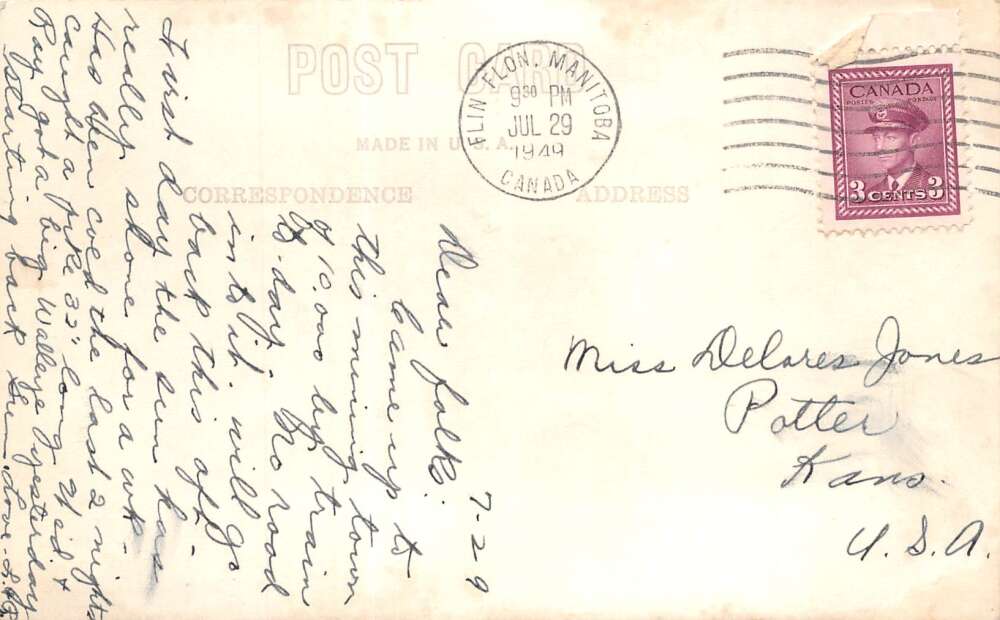 POST CARD
MADE IN U.S.A.
CORRESPONDENCE
ADDRESS
FLIN FLON, MANITOBA
9³⁰ PM
JUL 29
1949
CANADA
CANADA
POSTES POSTAGE
3 CENTS 3
7-29
Dear folks:
Came up to
this mining town
of 10,000 by train
to-day. No road
into it. will go
back this aft-
First day the sun has
really shone for a wk-
Has been cold the last 2 nights
caught a pike 32" long &
Ray got a big Walleye yesterday
starting back Love
Miss Delores Jones
Potter
Kans.
U.S.A.